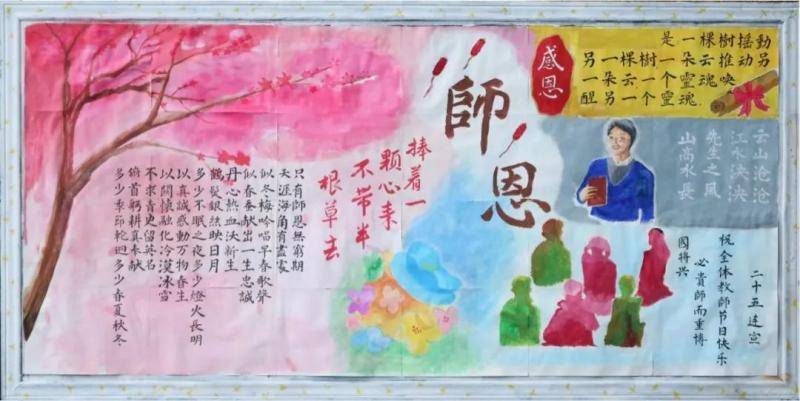 感恩
師恩
是一棵樹摇动
另一棵樹一朵云推动另
一朵云一个靈魂唤
醒另一个靈魂
云山沧沧
江水泱泱
先生之風
山高水長
捧着一
颗心来
不带半
根草去
只有師恩無窮期
天涯海角有盡處
似冬梅吟唱早春歌聲
似春蚕献出一生忠誠
丹心热血沃新生
鶴髮銀絲映日月
多少不眠之夜多少燈火長明
以真誠感動万物春生
以關懷融化冷漠冰雪
不求青史留英名
俯首躬耕真奉献
多少季節輪迴多少春夏秋冬
國将兴
必貴師而重博
祝全体教師节日快乐
二十五連宣